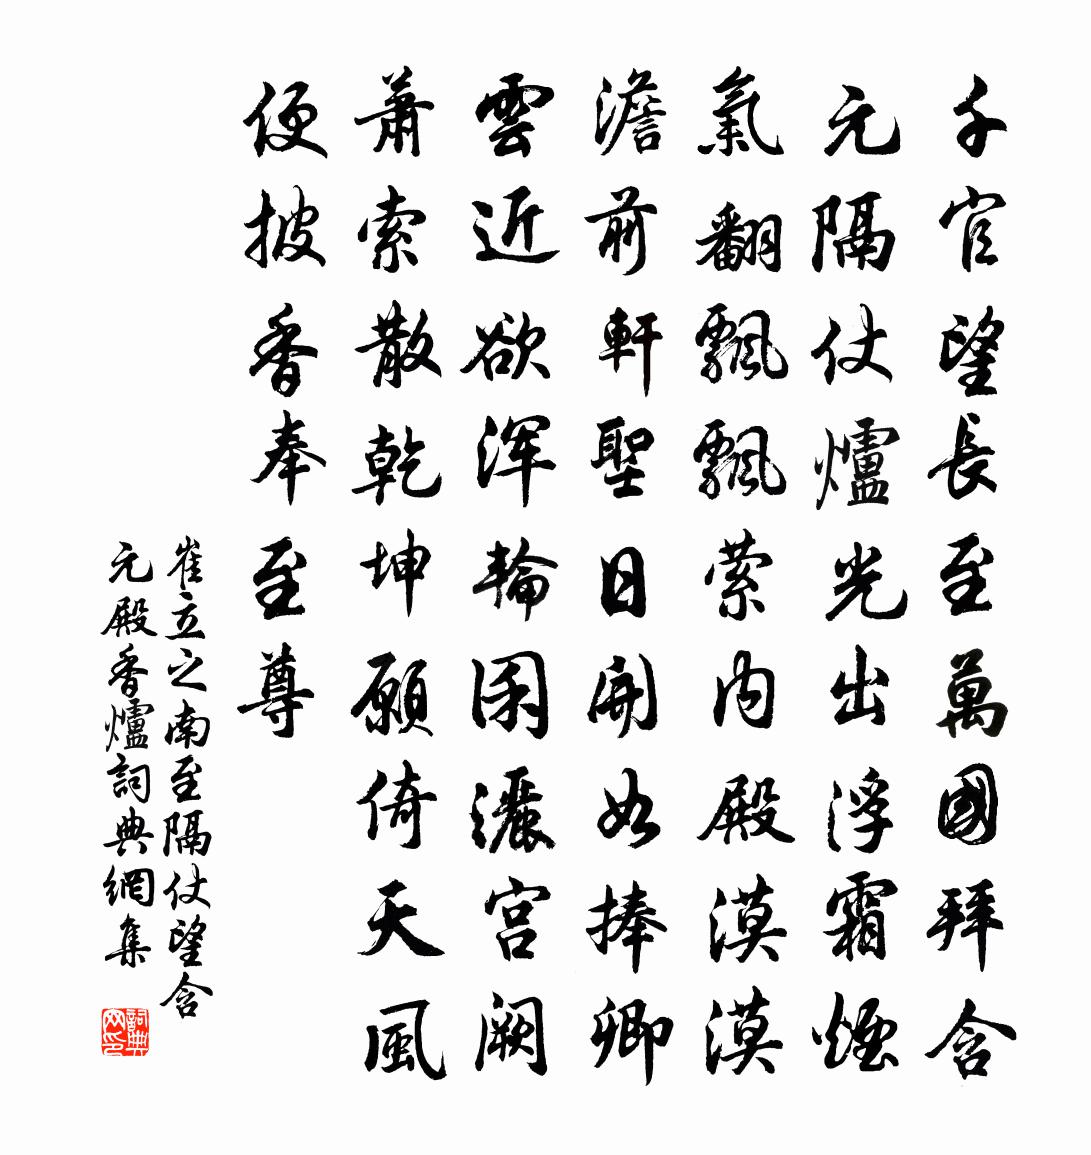 千官望長至萬國拜含
元隔仗爐光出浮霜煙
氣翻飄飄萦内殿漠漠
澹前軒聖日開如捧卿
雲近欲浑輪囷灑宫闕
蕭索散乾坤願倚天風
便披香奉至尊
崔立之南至隔仗望含
元殿香爐詞典網集
詞典网印